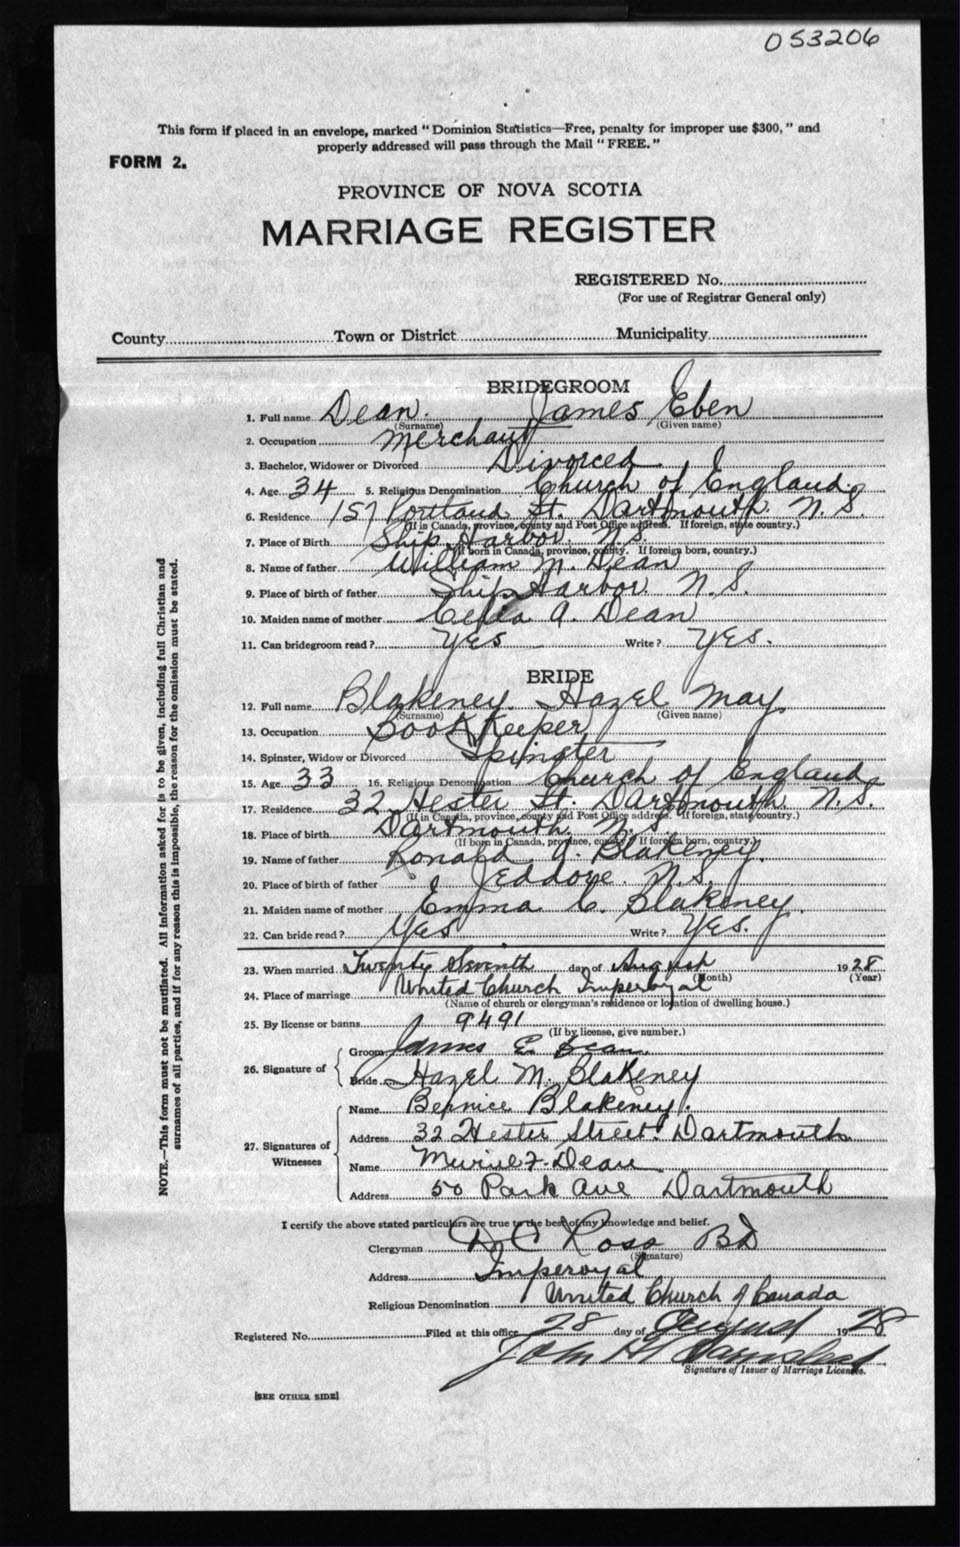 053206
This form if placed in an envelope, marked "Dominion Statistics—Free, penalty for improper use $300," and
properly addressed will pass through the Mail "FREE."
FORM 2.
PROVINCE OF NOVA SCOTIA
MARRIAGE REGISTER
REGISTERED No.
(For use of Registrar General only)
County Town or District Municipality
BRIDEGROOM
1. Full name Dean. James Eben
(Surname) (Given name)
2. Occupation Merchant
3. Bachelor, Widower or Divorced Divorced
4. Age 34 5. Religious Denomination Church of England.
6. Residence 157 Portland St. Dartmouth N.S.
(If in Canada, province, county and Post Office address. If foreign, state country.)
7. Place of Birth Ship Harbor N.S.
(If born in Canada, province, county. If foreign born, country.)
8. Name of father William M. Dean
9. Place of birth of father Ship Harbor N.S.
10. Maiden name of mother A. Dean
11. Can bridegroom read? Yes Write? Yes.
BRIDE
12. Full name Blakeney. Hazel May.
(Surname) (Given name)
13. Occupation Book Keeper
14. Spinster, Widow or Divorced Spinster
15. Age 33 16. Religious Denomination Church of England
17. Residence 32 Hester St. Dartmouth N.S.
(If in Canada, province, county and Post Office address. If foreign, state country.)
18. Place of birth Dartmouth N.S.
(If born in Canada, province, county. If foreign born, country.)
19. Name of father Ronald A. Blakeney.
20. Place of birth of father Jeddore N.S.
21. Maiden name of mother Emma C. Blakeney.
22. Can bride read? Yes Write? Yes.
23. When married Twenty Seventh day of August 1928
(Month) (Year)
24. Place of marriage United Church Imperoyal
(Name of church or clergyman's residence or location of dwelling house.)
25. By license or banns 9491
(If by license, give number.)
26. Signature of
Groom James E. Dean
Bride Hazel M. Blakeney
27. Signatures of Witnesses
Name Bernice Blakeney.
Address 32 Hester Street. Dartmouth
Name Dean
Address 50 Park Ave Dartmouth
I certify the above stated particulars are true to the best of my knowledge and belief.
Clergyman D C Ross BD
(Signature)
Address Imperoyal
Religious Denomination United Church of Canada
Registered No. Filed at this office 28 day of August 1928
John H
Signature of Issuer of Marriage Licenses.
[SEE OTHER SIDE]
NOTE.—This form must not be mutilated. All information asked for is to be given, including full Christian and
surnames of all parties, and if for any reason this is impossible, the reason for the omission must be stated.